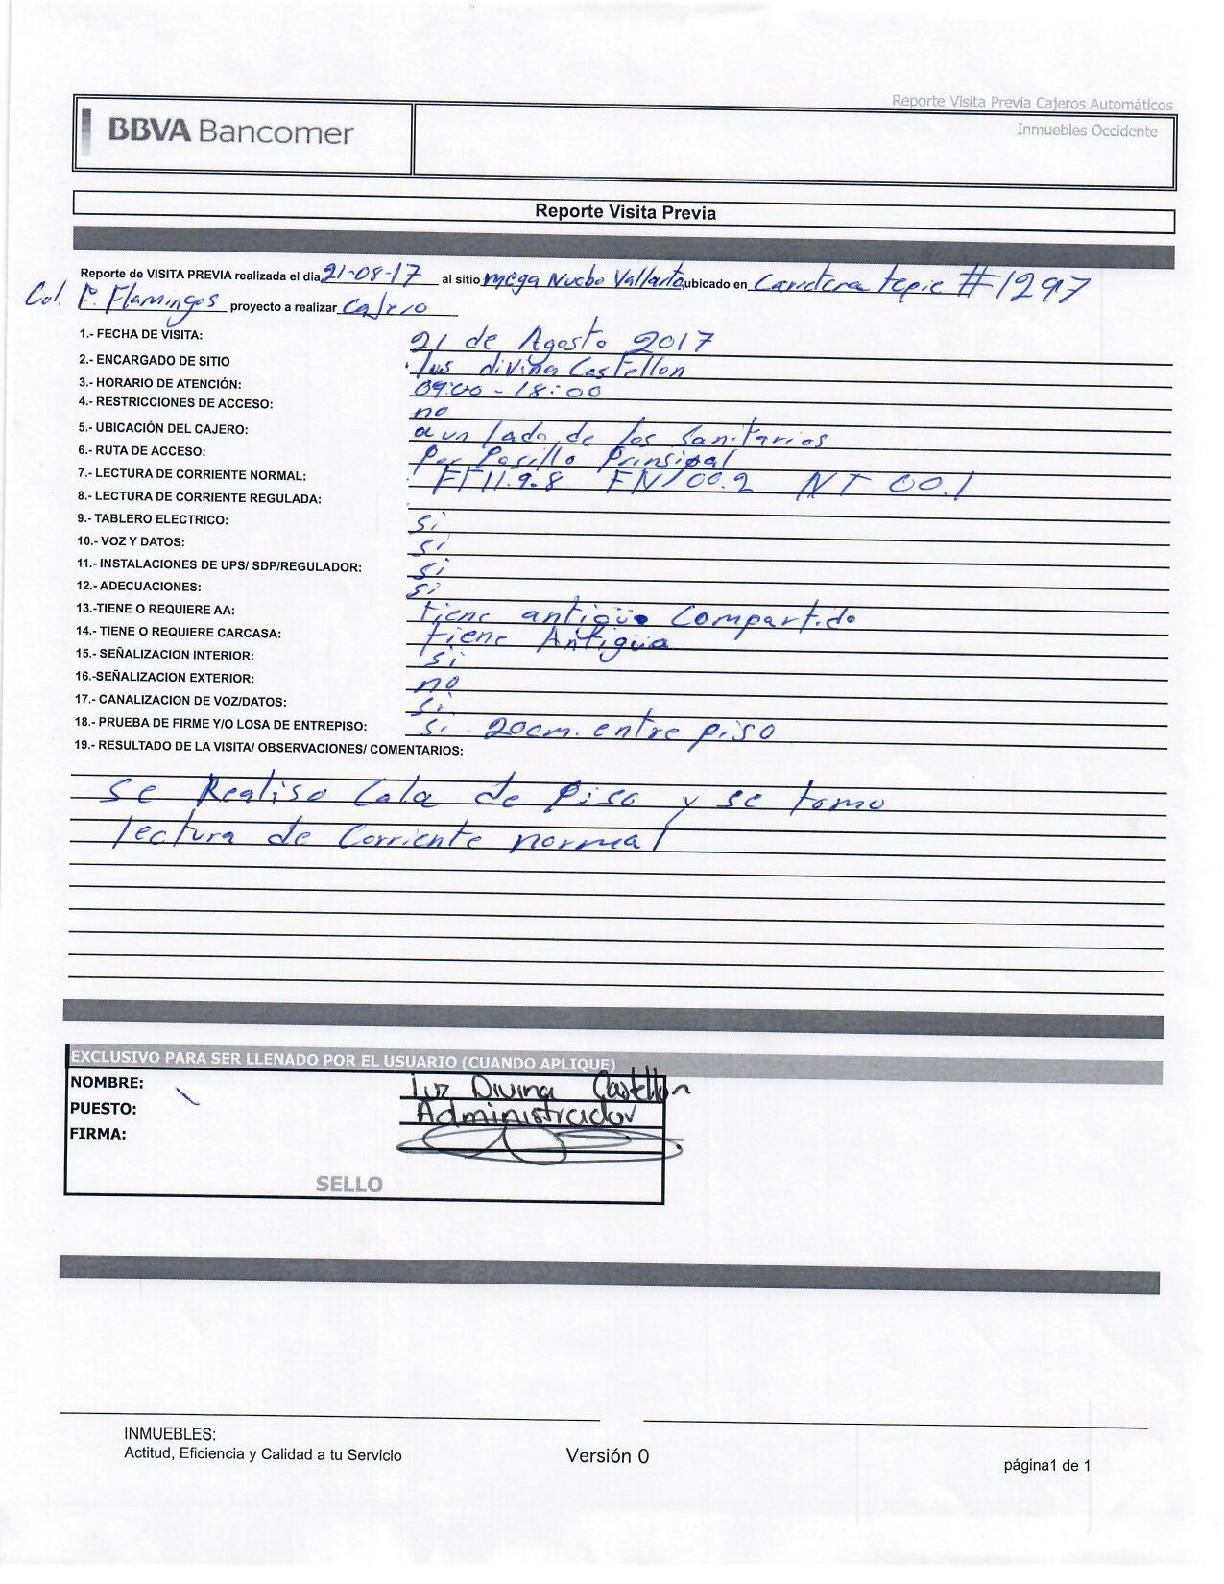 Reporte Visita Previa Cajeros Automáticos
BBVA Bancomer
Inmuebles Occidente
Reporte Visita Previa
Reporte de VISITA PREVIA realizada el dia 21-08-17 al sitio mega Nuebo Vallarta ubicado en Carretera tepic #1297
Col. F. Flamingos proyecto a realizar Cajero
1.- FECHA DE VISITA: 21 de Agosto 2017
2.- ENCARGADO DE SITIO lus divina Castellon
3.- HORARIO DE ATENCIÓN: 09:00 - 18:00
4.- RESTRICCIONES DE ACCESO: no
5.- UBICACIÓN DEL CAJERO: a un lado de los Sanitarios
6.- RUTA DE ACCESO: Por Pasillo Prinsipal
7.- LECTURA DE CORRIENTE NORMAL: FT 11.9.8 FN/00.2 NT 00.1
8.- LECTURA DE CORRIENTE REGULADA:
9.- TABLERO ELECTRICO: si
10.- VOZ Y DATOS: si
11.- INSTALACIONES DE UPS/ SDP/REGULADOR: si
12.- ADECUACIONES: si
13.-TIENE O REQUIERE AA: tiene antigüo Compartido
14.- TIENE O REQUIERE CARCASA: tiene Antigua
15.- SEÑALIZACION INTERIOR: si
16.-SEÑALIZACION EXTERIOR: no
17.- CANALIZACION DE VOZ/DATOS: si
18.- PRUEBA DE FIRME Y/O LOSA DE ENTREPISO: si 20cm. entre piso
19.- RESULTADO DE LA VISITA/ OBSERVACIONES/ COMENTARIOS:
se Realiso Cala de Piso y se tomo
lectura de Corriente normal
EXCLUSIVO PARA SER LLENADO POR EL USUARIO (CUANDO APLIQUE)
NOMBRE: Luz Divina Castellon
PUESTO: Administrador
FIRMA:
SELLO
INMUEBLES:
Actitud, Eficiencia y Calidad a tu Servicio
Versión 0
página1 de 1